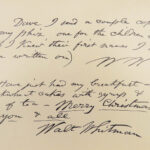 Dave, I send a couple cop
my phiz, one for the children &
I knew their first names I
written on)
W W
Have just had my breakfast
buckwheat cakes with syrup &
of tea - Merry Christmas
you & all
Walt Whitman